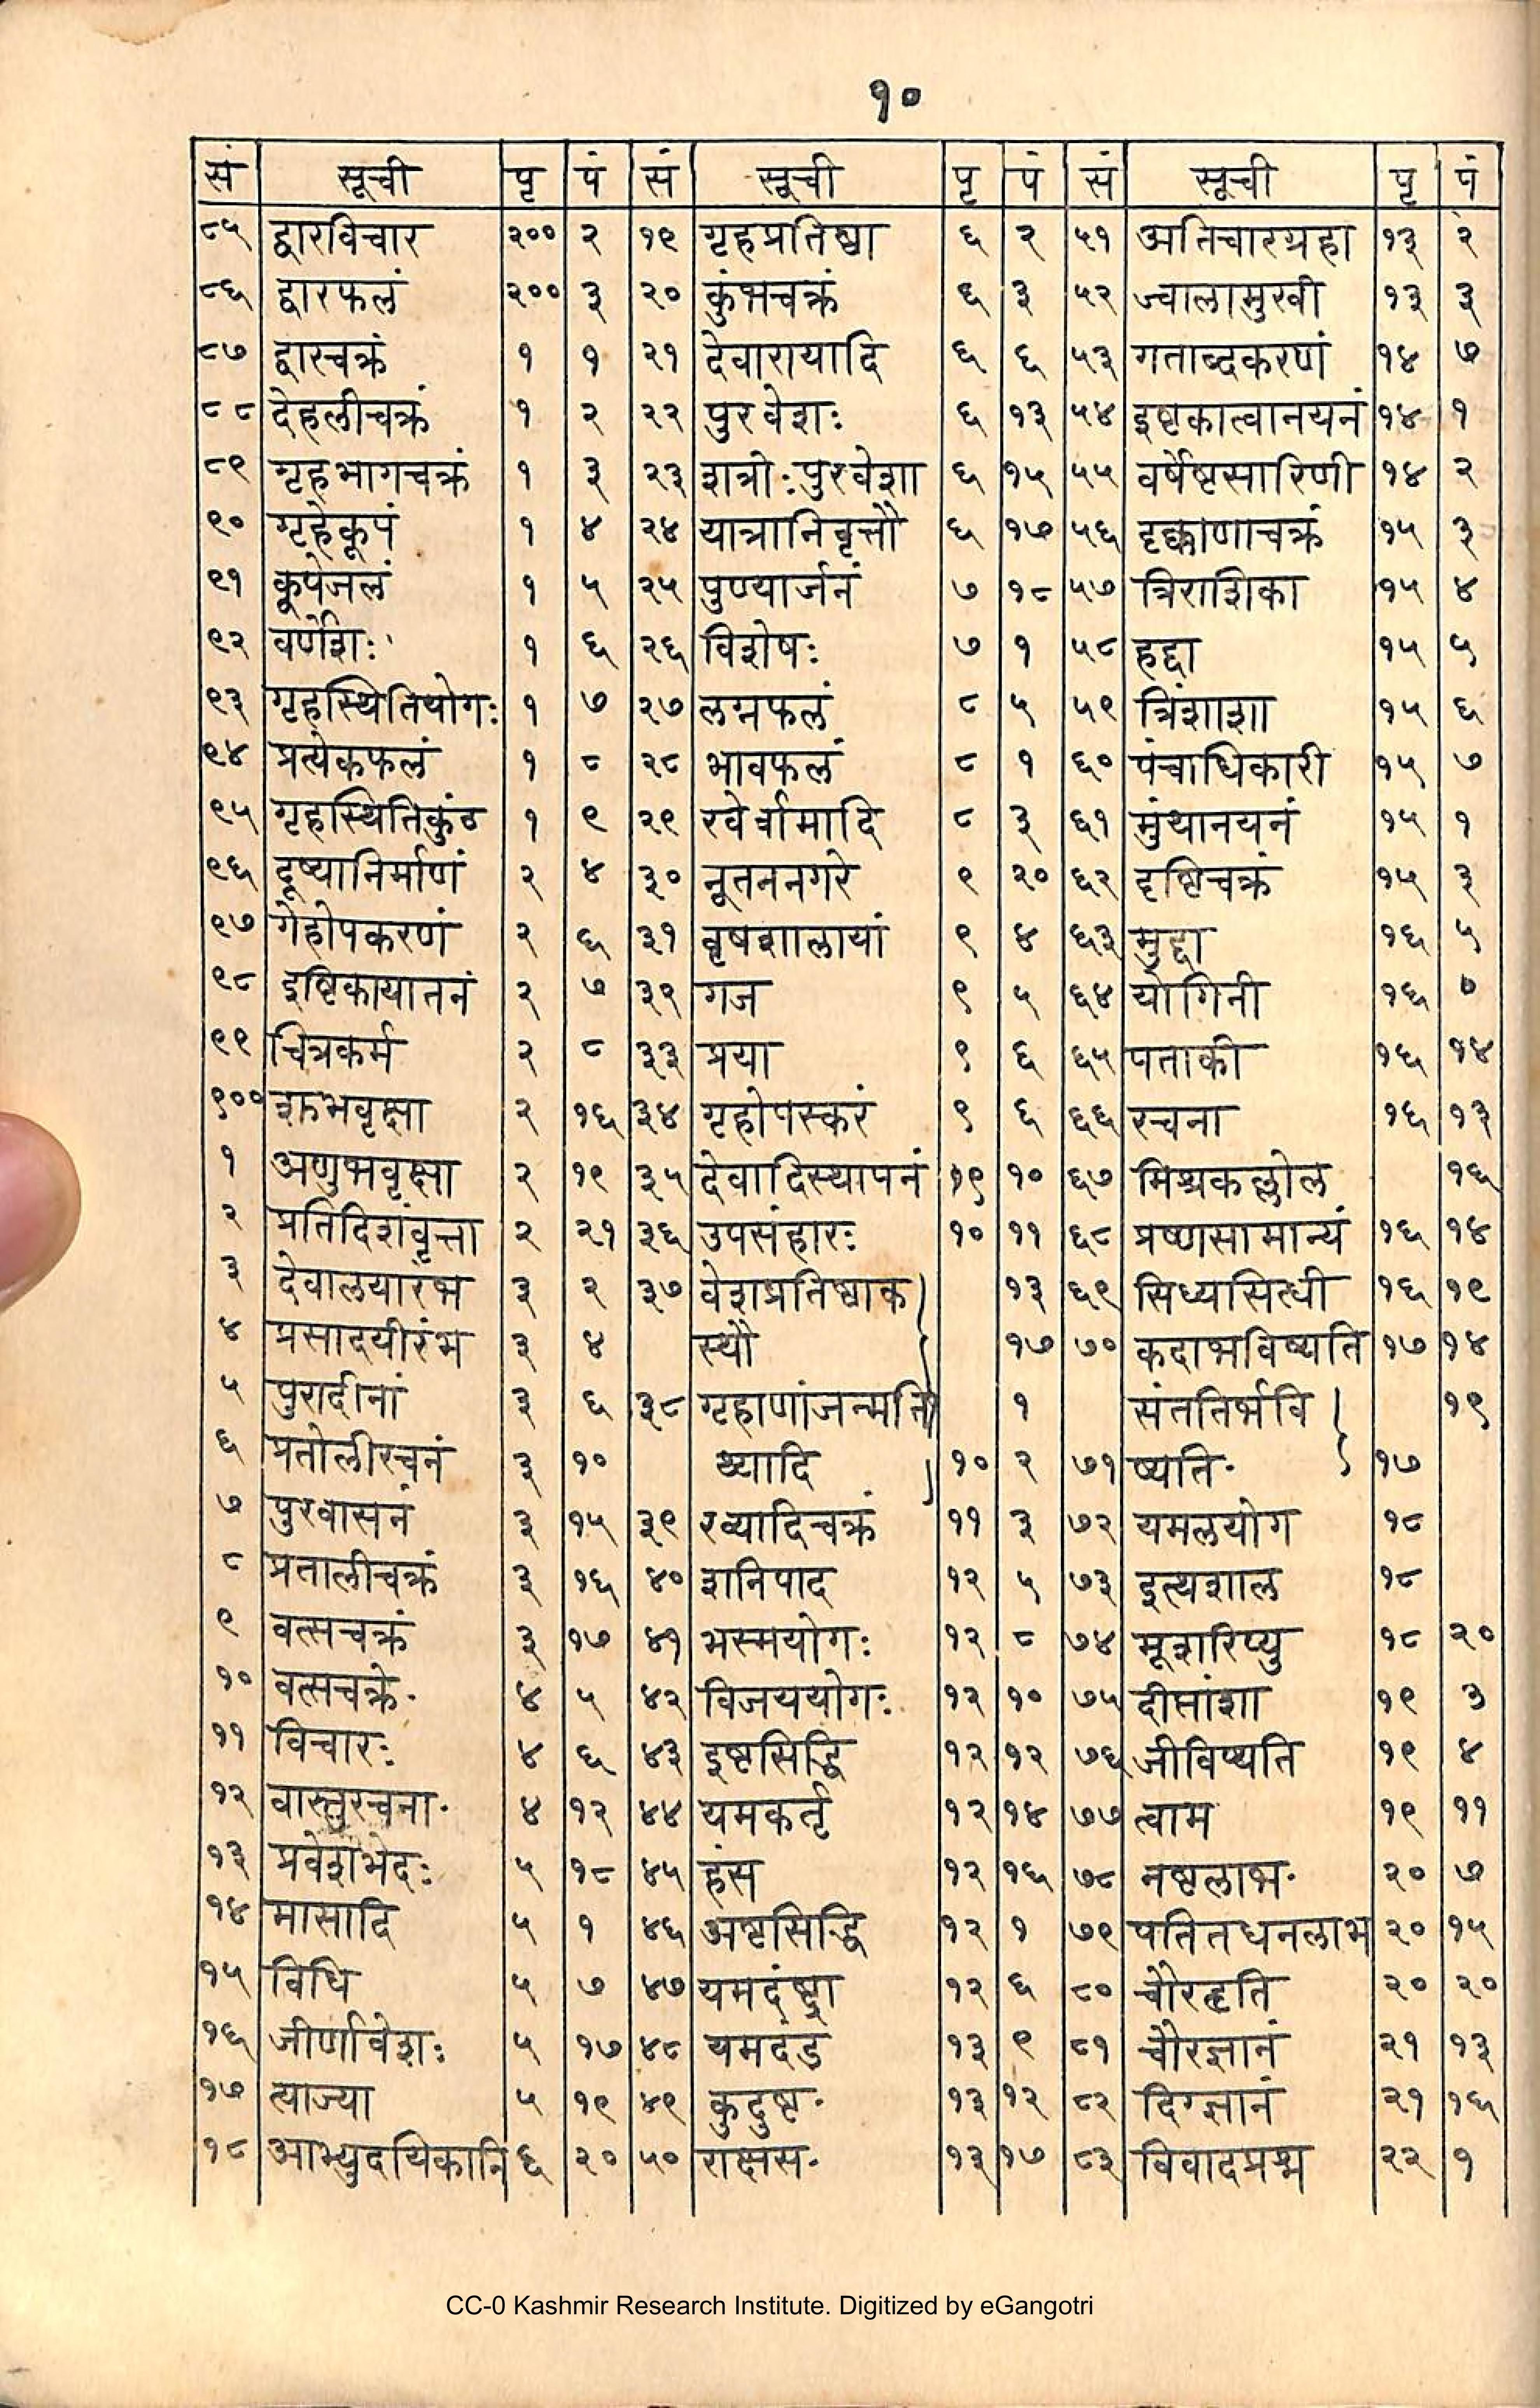 १०
सं सूची पृ पं सं सूची पृ पं सं सूची पृ पं
८५ द्वारविचार २०० २ १९ गृहप्रतिष्ठा ६ २ ५१ अतिचारग्रहा १३ २
८६ द्वारफलं २०० ३ २० कुंभचक्रं ६ ३ ५२ ज्वालामुखी १३ ३
८७ द्वारचक्रं १ १ २१ देवारायादि ६ ६ ५३ गताब्दकरणं १४ ७
८८ देहलीचक्रं १ २ २२ पुरवेशः ६ १३ ५४ इष्टकात्वानयनं १४ १
८९ गृहभागचक्रं १ ३ २३ शत्रोःपुरवेशा ६ १५ ५५ वर्षेष्टसारिणी १४ २
९० गृहेकूपं १ ४ २४ यात्रानिवृत्तौ ६ १७ ५६ दृक्काणाचक्रं १५ ३
९१ कूपेजलं १ ५ २५ पुण्यार्जनं ७ १८ ५७ त्रिराशिका १५ ४
९२ वर्णेशः १ ६ २६ विशेषः ७ १ ५८ हद्दा १५ ५
९३ गृहस्थितियोगः १ ७ २७ लग्नफलं ८ ५ ५९ त्रिंशाशा १५ ६
९४ प्रत्येकफलं १ ८ २८ भावफलं ८ १ ६० पंचाधिकारी १५ ७
९५ गृहस्थितिकुंठ १ ९ २९ रवेर्वामादि ८ ३ ६१ मुंथानयनं १५ १
९६ दूष्यानिर्माणं २ ४ ३० नूतननगरे ९ २० ६२ दृष्टिचक्रं १५ ३
९७ गेहोपकरणं २ ६ ३१ वृषशालायां ९ ४ ६३ मुद्दा १६ ५
९८ इष्टिकायाननं २ ७ ३२ गज ९ ५ ६४ योगिनी १६ ०
९९ चित्रकर्म २ ८ ३३ प्रया ९ ६ ६५ पताकी १६ १४
१०० शुभवृक्षा २ १६ ३४ गृहोपस्करं ९ ६ ६६ रचना १६ १३
१ अशुभवृक्षा २ १९ ३५ देवादिस्थापनं १९ १० ६७ मिश्रकल्लोल १६
२ प्रतिदिशंवृत्ता २ २१ ३६ उपसंहारः १० ११ ६८ प्रष्णसामान्यं १६ १४
३ देवालयारंभ ३ २ ३७ वेशप्रतिष्ठाक १३ ६९ सिध्यसित्धी १६ १९
४ प्रसादयीरंभ ३ ४ स्यौ १७ ७० कदाभविष्यति १७ १४
५ पुरादीनां ३ ६ ३८ गृहाणांजन्मति १ संततिर्भवि १९
६ प्रतोलीरचनं ३ १० थ्यादि १० २ ७१ ष्यति॰ १७
७ पुरवासनं ३ १५ ३९ रव्यादिचक्रं ११ ३ ७२ यमलयोग १८
८ प्रतालीचक्रं ३ १६ ४० शनिपाद १२ ५ ७३ इत्यशाल १८
९ वत्सचक्रं ३ १७ ४१ भस्मयोगः १२ ८ ७४ मूशरिप्यु १८ २०
१० वत्सचक्रे॰ ४ ५ ४२ विजययोगः १२ १० ७५ दीप्तांशा १९ ३
११ विचारः ४ ६ ४३ इष्टसिद्धि १२ १२ ७६ जीविष्यति १९ ४
१२ वास्तुरचना॰ ४ १२ ४४ यमकर्तृ १२ १४ ७७ त्वाम १९ ११
१३ प्रवेशभेदः ५ १८ ४५ हंस १२ १६ ७८ नष्टलाभ॰ २० ७
१४ मासादि ५ १ ४६ अष्टसिद्धि १२ १ ७९ पतितधनलाभ २० १५
१५ विधि ५ ७ ४७ यमदंष्ट्रा १२ ६ ८० चौरहृति २० २०
१६ जीर्णावेशः ५ १७ ४८ यमदंड १३ ९ ८१ चौरज्ञानं २१ १३
१७ त्याज्या ५ १९ ४९ कुदुष्ट॰ १३ १२ ८२ दिग्ज्ञानं २१ १६
१८ आभ्युदयिकानि ६ २० ५० राक्षस॰ १३ १७ ८३ विवादप्रश्न २२ १
CC-0 Kashmir Research Institute. Digitized by eGangotri